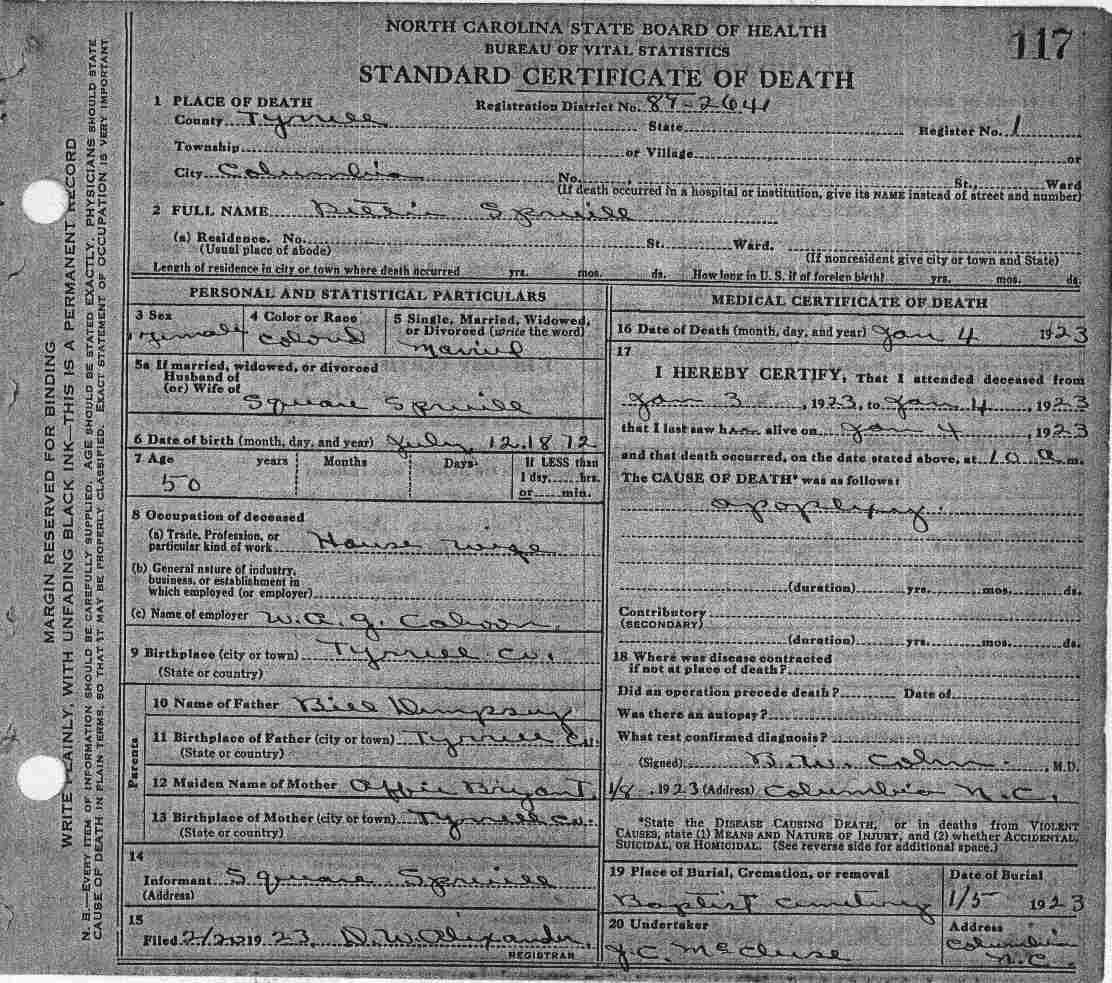 NORTH CAROLINA STATE BOARD OF HEALTH
BUREAU OF VITAL STATISTICS
117
STANDARD CERTIFICATE OF DEATH
1 PLACE OF DEATH
Registration District No. 89-2641
County Tyrrell State Register No. 1
Township or Village or
City Columbia No. St., Ward
(If death occurred in a hospital or institution, give its NAME instead of street and number)
2 FULL NAME Spruill
(a) Residence. No. St. Ward.
(Usual place of abode)
(If nonresident give city or town and State)
Length of residence in city or town where death occurred yrs. mos. ds. How long in U. S. if of foreign birth? yrs. mos. ds.
PERSONAL AND STATISTICAL PARTICULARS
3 Sex
Female
4 Color or Race
Colored
5 Single, Married, Widowed,
or Divorced (write the word)
Married
5a If married, widowed, or divorced
Husband of
(or) Wife of
Square Spruill
6 Date of birth (month, day, and year) July 12, 1872
7 Age years Months Days If LESS than
1 day, hrs.
or min.
50
8 Occupation of deceased
(a) Trade, Profession, or
particular kind of work House wife
(b) General nature of industry,
business, or establishment in
which employed (or employer)
(c) Name of employer W. A. J. Cahoon,
9 Birthplace (city or town) Tyrrell Co.
(State or country)
Parents
10 Name of Father Bill Dempsey
11 Birthplace of Father (city or town) Tyrrell Co.
(State or country)
12 Maiden Name of Mother Affie Bryant,
13 Birthplace of Mother (city or town) Tyrrell Co.
(State or country)
14
Informant Square Spruill
(Address)
15
Filed 1923, D. W. Alexander,
REGISTRAR
MEDICAL CERTIFICATE OF DEATH
16 Date of Death (month, day, and year) Jan 4 1923
17
I HEREBY CERTIFY, That I attended deceased from
Jan 3, 1923, to Jan 4, 1923
that I last saw her alive on Jan 4, 1923
and that death occurred, on the date stated above, at 10 a m.
The CAUSE OF DEATH* was as follows:
apoplexy
(duration) yrs. mos. ds.
Contributory
(SECONDARY)
(duration) yrs. mos. ds.
18 Where was disease contracted
if not at place of death?
Did an operation precede death? Date of
Was there an autopsy?
What test confirmed diagnosis?
(Signed) , M.D.
1/8, 1923 (Address) Columbia N.C.
*State the DISEASE CAUSING DEATH, or in deaths from VIOLENT
CAUSES, state (1) MEANS AND NATURE OF INJURY, and (2) whether ACCIDENTAL,
SUICIDAL, OR HOMICIDAL. (See reverse side for additional space.)
19 Place of Burial, Cremation, or removal
Baptist Cemetery
Date of Burial
1/5 1923
20 Undertaker
J. C. McCluse
Address
Columbia
N.C.
MARGIN RESERVED FOR BINDING
WRITE PLAINLY, WITH UNFADING BLACK INK—THIS IS A PERMANENT RECORD
N. B.—EVERY ITEM OF INFORMATION SHOULD BE CAREFULLY SUPPLIED. AGE SHOULD BE STATED EXACTLY. PHYSICIANS SHOULD STATE
CAUSE OF DEATH IN PLAIN TERMS, SO THAT IT MAY BE PROPERLY CLASSIFIED. EXACT STATEMENT OF OCCUPATION IS VERY IMPORTANT